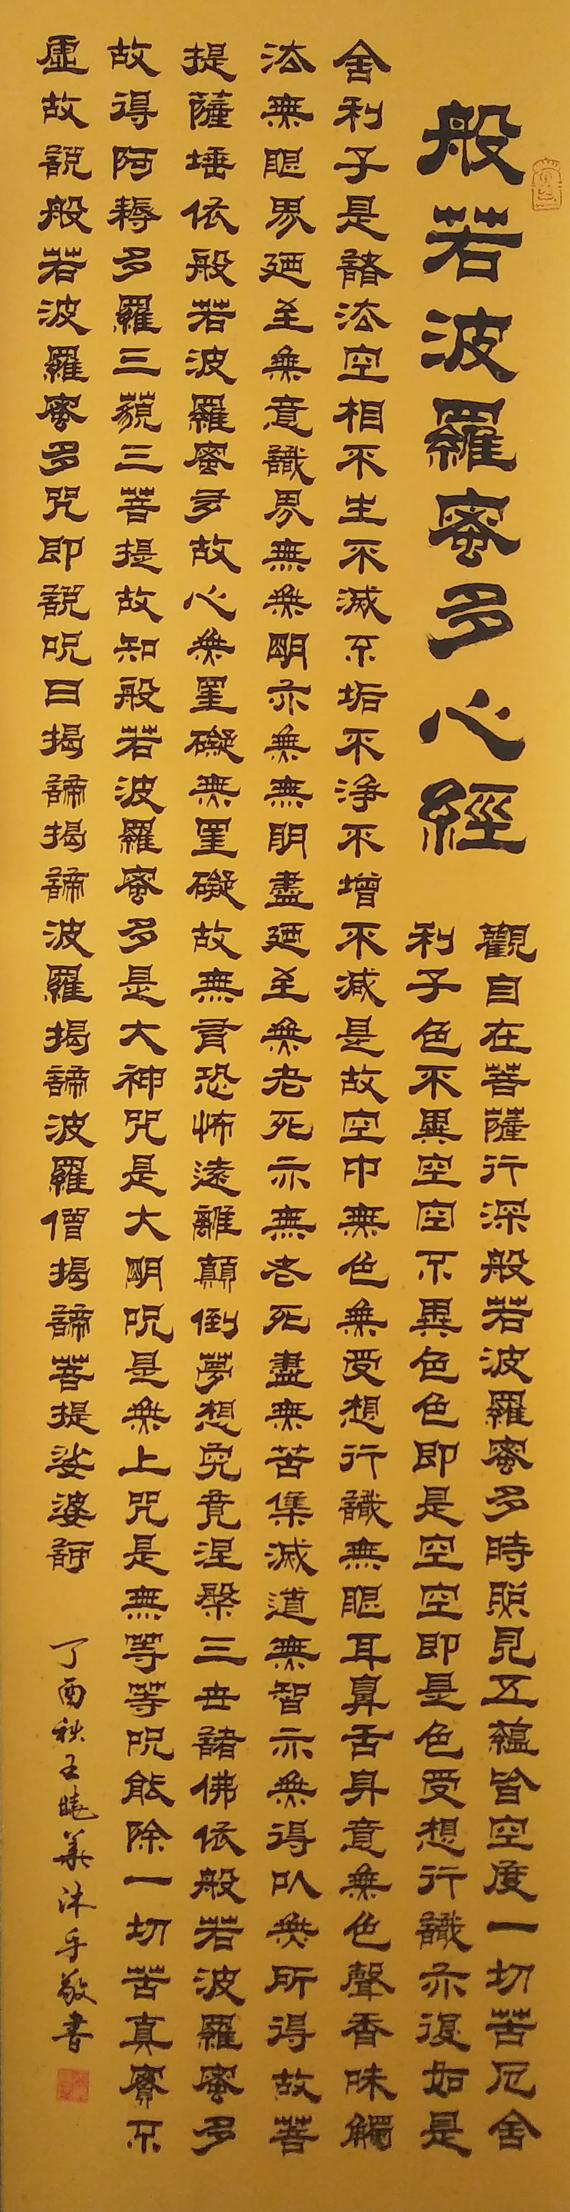 般若波羅蜜多心經
觀自在菩薩行深般若波羅蜜多時照見五蘊皆空度一切苦厄舍
利子色不異空空不異色色即是空空即是色受想行識亦復如是
舍利子是諸法空相不生不滅不垢不淨不增不減是故空中無色無受想行識無眼耳鼻舌身意無色聲香味觸
法無眼界廼至無意識界無無明亦無無明盡廼至無老死亦無老死盡無苦集滅道無智亦無得以無所得故菩
提薩埵依般若波羅蜜多故心無罣礙無罣礙故無有恐怖遠離顛倒夢想究竟涅槃三世諸佛依般若波羅蜜多
故得阿耨多羅三藐三菩提故知般若波羅蜜多是大神咒是大明咒是無上咒是無等等咒能除一切苦真實不
虛故說般若波羅蜜多咒即說咒曰揭諦揭諦波羅揭諦波羅僧揭諦菩提娑婆訶 丁酉秋王曉華沐手敬書